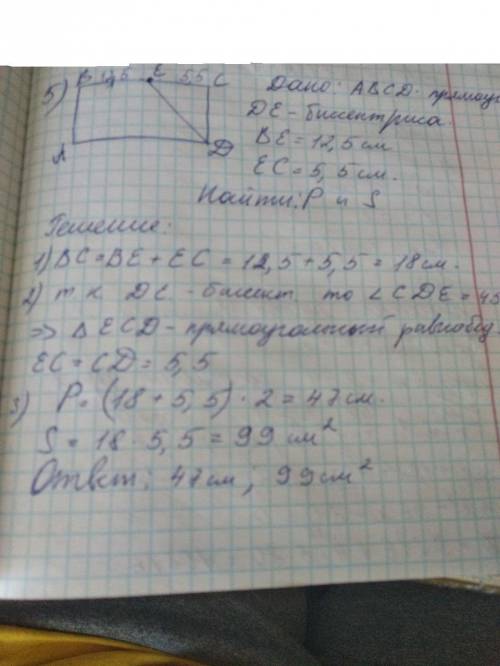 5)
B 12,5 E 5,5 C
A D
Дано: ABCD- прямоуг
DE-биссектриса.
BE=12,5см
EC=5,5см.
Найти: P и S
Решение:
1) BC=BE+EC=12,5+5,5=18см.
2) т к DE-биссект то ∠CDE=45
=> △ECD-прямоугольный равнобед.
EC=CD=5,5
3) P=(18+5,5)·2=47см.
S=18·5,5=99см²
Ответ: 47см; 99см²